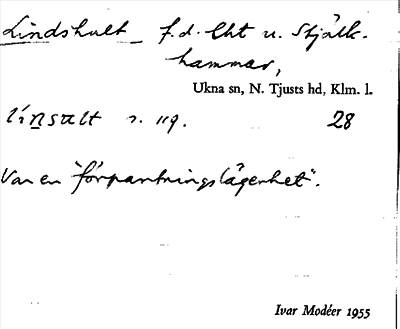 Lindshult f.d. lht u. Stjälk-
hammar,
Ukna sn, N. Tjusts hd, Klm. l.
línsält n. 119. 28
Var en "förpantningslägenhet".
Ivar Modéer 1955